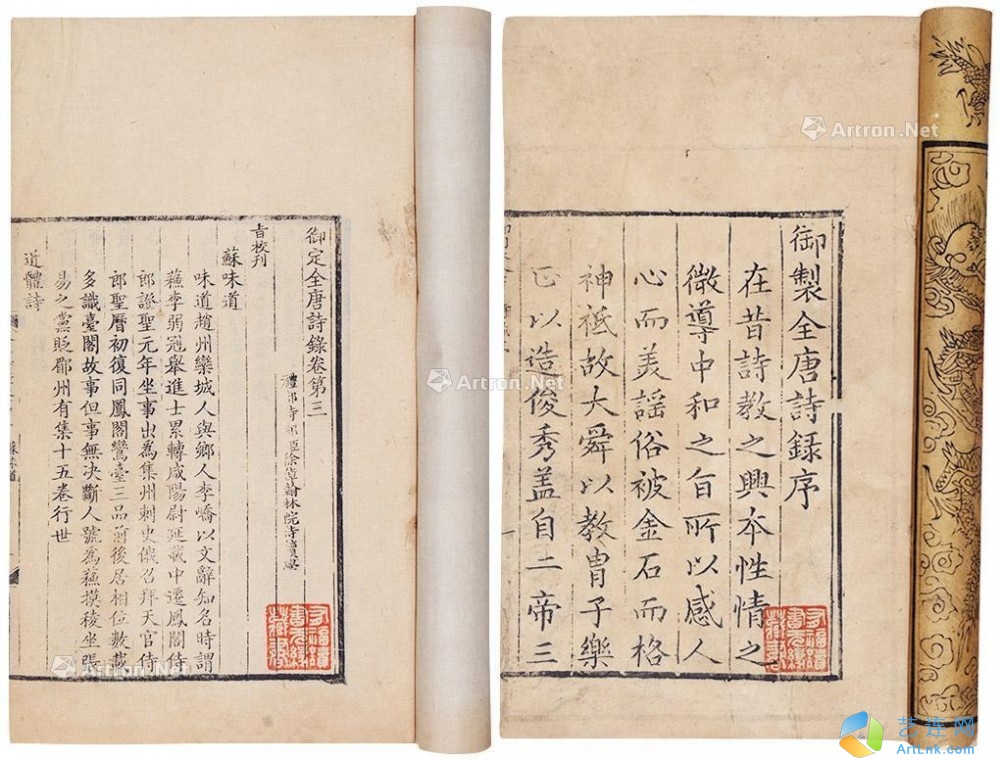 御製全唐詩録序
在昔詩教之興本性情之
微導中和之旨所以感人
心而美謡俗被金石而格
神祗故大舜以教胄子樂
正以造俊秀盖自二帝三
御定全唐詩錄卷第三
旨校刊
蘇味道
味道趙州欒城人與鄉人李嶠以文辭知名時謂
蘇李弱冠舉進士累轉咸陽尉延載中遷鳳閣侍
郎證聖元年坐事出為集州刺史俄召拜天官侍
郎聖曆初復同鳳閣鸞臺三品前後居相位數載
多識臺閣故事但事無决斷人號為蘇摸稜坐張
易之黨貶郿州有集十五卷行世
近體詩
有福讀
書
Artron.Net
Artron.Net
Artron.Net
Artron.Net
艺连网
ArtLnk.com